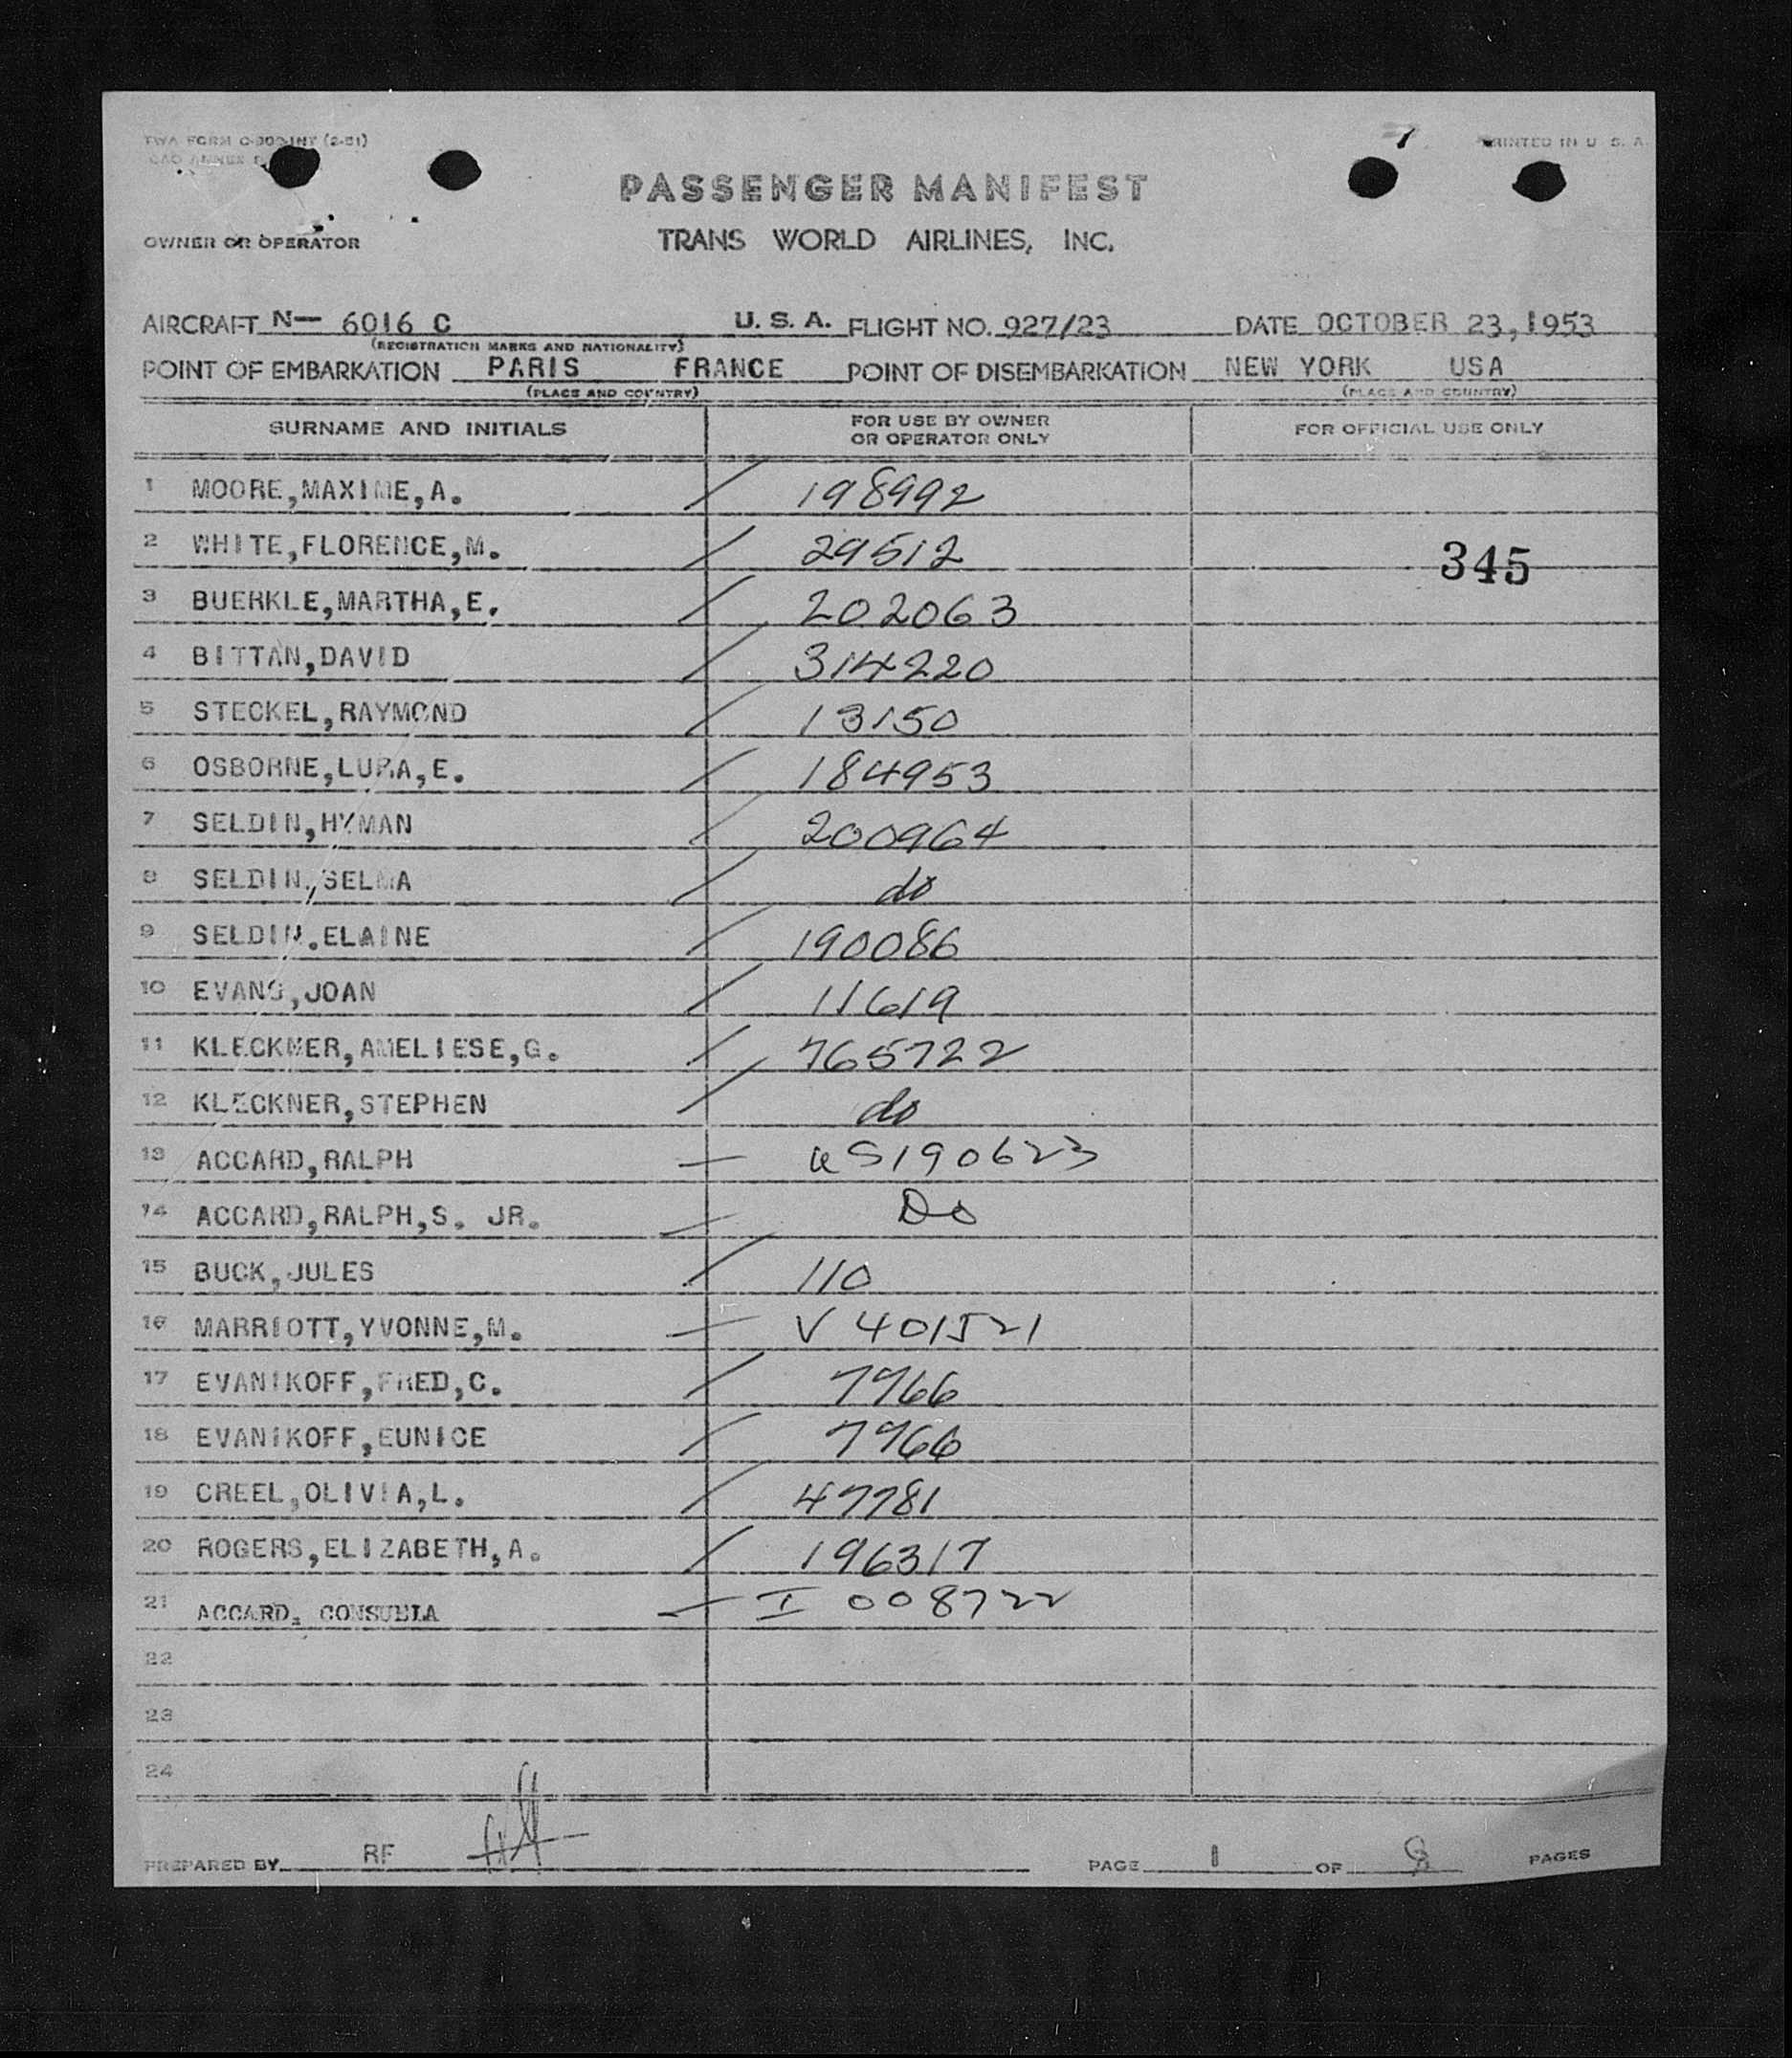 TWA FORM O-300-INT (2-51)
PRINTED IN U. S. A.
PASSENGER MANIFEST
OWNER OR OPERATOR
TRANS WORLD AIRLINES, INC.
AIRCRAFT N— 6016 C U. S. A. FLIGHT NO. 927/23 DATE OCTOBER 23, 1953
(REGISTRATION MARKS AND NATIONALITY)
POINT OF EMBARKATION PARIS FRANCE POINT OF DISEMBARKATION NEW YORK USA
(PLACE AND COUNTRY) (PLACE AND COUNTRY)
SURNAME AND INITIALS FOR USE BY OWNER OR OPERATOR ONLY FOR OFFICIAL USE ONLY
1 MOORE,MAXIME,A. / 198992
2 WHITE,FLORENCE,M. / 29512
345
3 BUERKLE,MARTHA,E. / 202063
4 BITTAN,DAVID / 314220
5 STECKEL,RAYMOND / 13150
6 OSBORNE,LURA,E. / 184953
7 SELDIN,HYMAN / 200964
8 SELDIN,SELMA / do
9 SELDIN.ELAINE / 190086
10 EVANS,JOAN / 11619
11 KLECKNER,AMELIESE,G. / 765722
12 KLECKNER,STEPHEN / do
13 ACCARD,RALPH — US190623
14 ACCARD,RALPH,S. JR. — Do
15 BUCK,JULES / 110
16 MARRIOTT,YVONNE,M. — V 401521
17 EVANIKOFF,FRED,C. / 7766
18 EVANIKOFF,EUNICE / 7766
19 CREEL,OLIVIA,L. / 47781
20 ROGERS,ELIZABETH,A. / 196317
21 ACCARD, CONSUELA — I 008722
22
23
24
PREPARED BY RF PAGE 1 OF PAGES